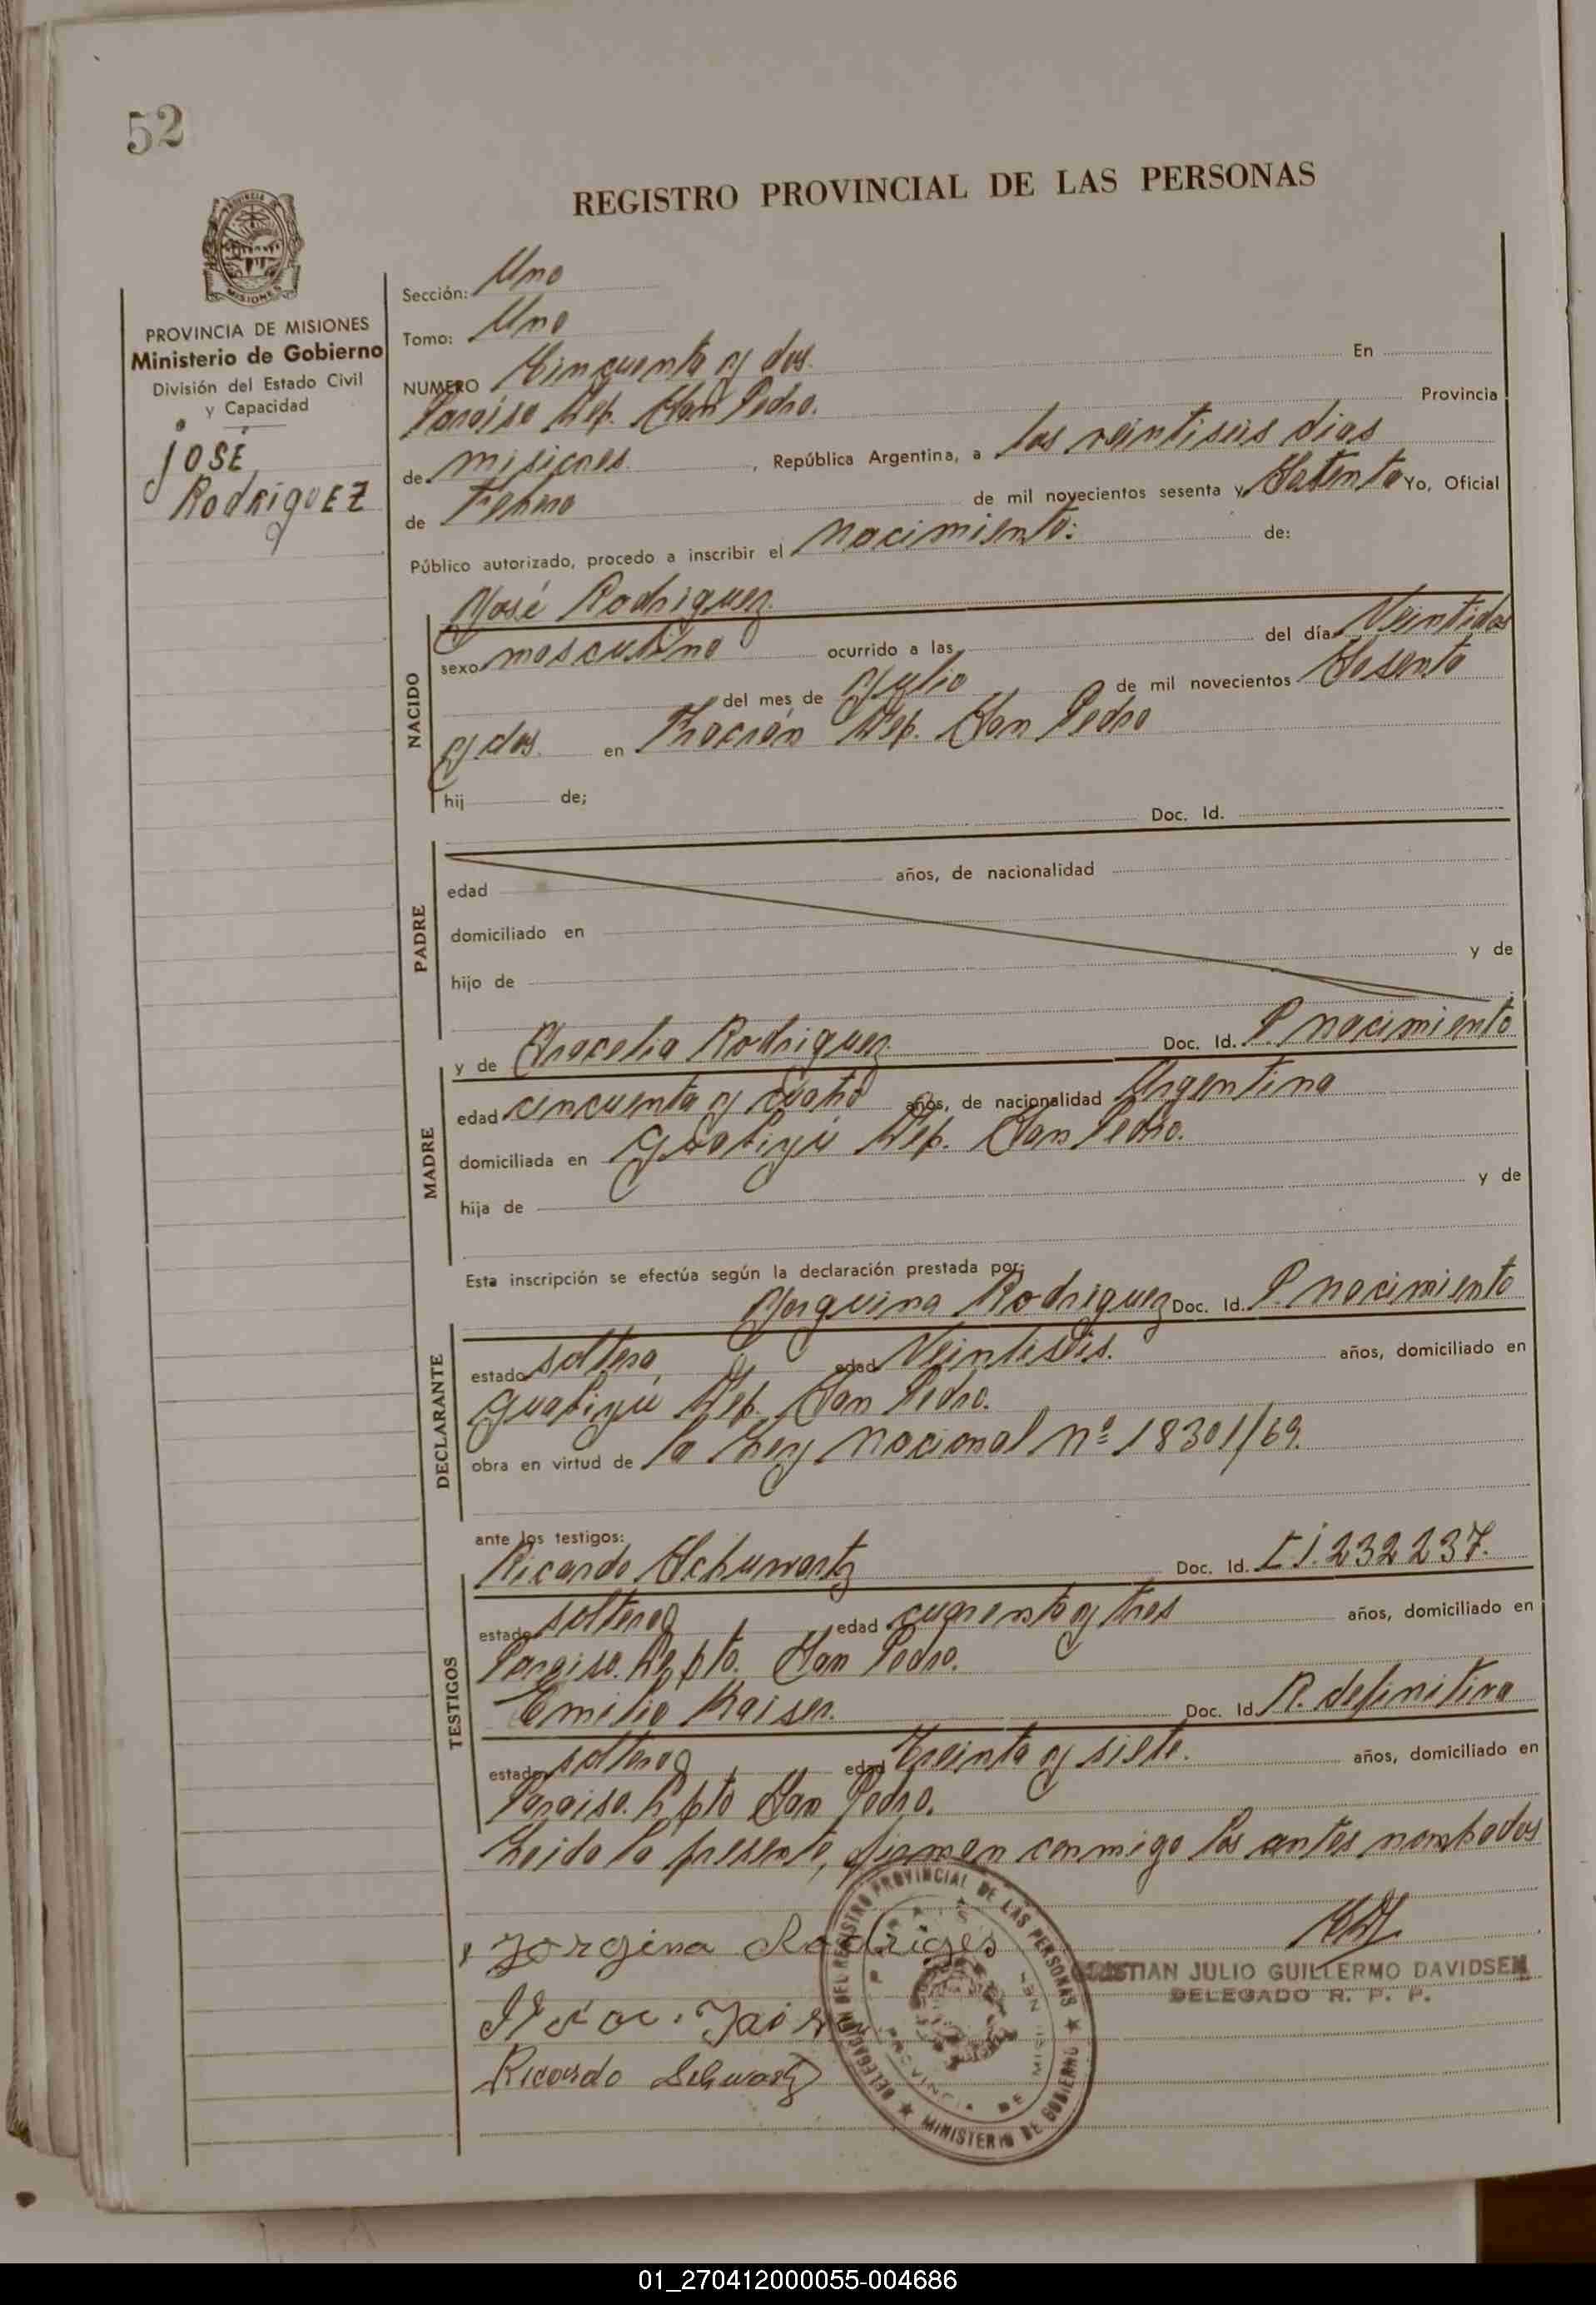 52
REGISTRO PROVINCIAL DE LAS PERSONAS
PROVINCIA DE MISIONES
Ministerio de Gobierno
División del Estado Civil
y Capacidad
JOSÉ
RodRigUEZ
Sección: Uno
Tomo: Uno
NUMERO Cincuenta y dos. En
Paraíso Dep. San Pedro. Provincia
de misiones , República Argentina, a los veintiseis dias
de Febrero de mil novecientos sesenta y Setenta Yo, Oficial
Público autorizado, procedo a inscribir el nacimiento: de:
NACIDO
José Rodriguez
sexo masculino ocurrido a las del día Veintidos
del mes de Julio de mil novecientos Sesenta
y dos. en Fracrán Dep. San Pedro
hij de;
Doc. Id.
PADRE
edad años, de nacionalidad
domiciliado en
hijo de y de
MADRE
y de Rodriguez Doc. Id. P. nacimiento
edad cincuenta y cuatro años, de nacionalidad Argentina
domiciliada en Dep. San Pedro.
hija de y de
Esta inscripción se efectúa según la declaración prestada por:
DECLARANTE
Jorguina Rodriguez Doc. Id. P. nacimiento
estado soltera edad Veintiseis. años, domiciliado en
Dep. San Pedro.
obra en virtud de la Ley Nacional nº 18301/69.
TESTIGOS
ante los testigos:
Ricardo Schuwartz Doc. Id. C.I. 232237.
estado soltero edad cuarenta y tres años, domiciliado en
Paraiso. Depto. San Pedro.
Emilio Kaiser. Doc. Id. R. definitiva
estado soltero edad treinta y siete. años, domiciliado en
Paraiso. Dpto San Pedro.
Leida la presente, firman conmigo los antes nombados
Jorgina Rodriges
CRISTIAN JULIO GUILLERMO DAVIDSEN
DELEGADO R. P. P.
Ricardo Schwartz
DELEGACIÓN DEL REGISTRO PROVINCIAL DE LAS PERSONAS ★ MINISTERIO DE GOBIERNO ★
PROVINCIA DE MISIONES
01_270412000055-004686